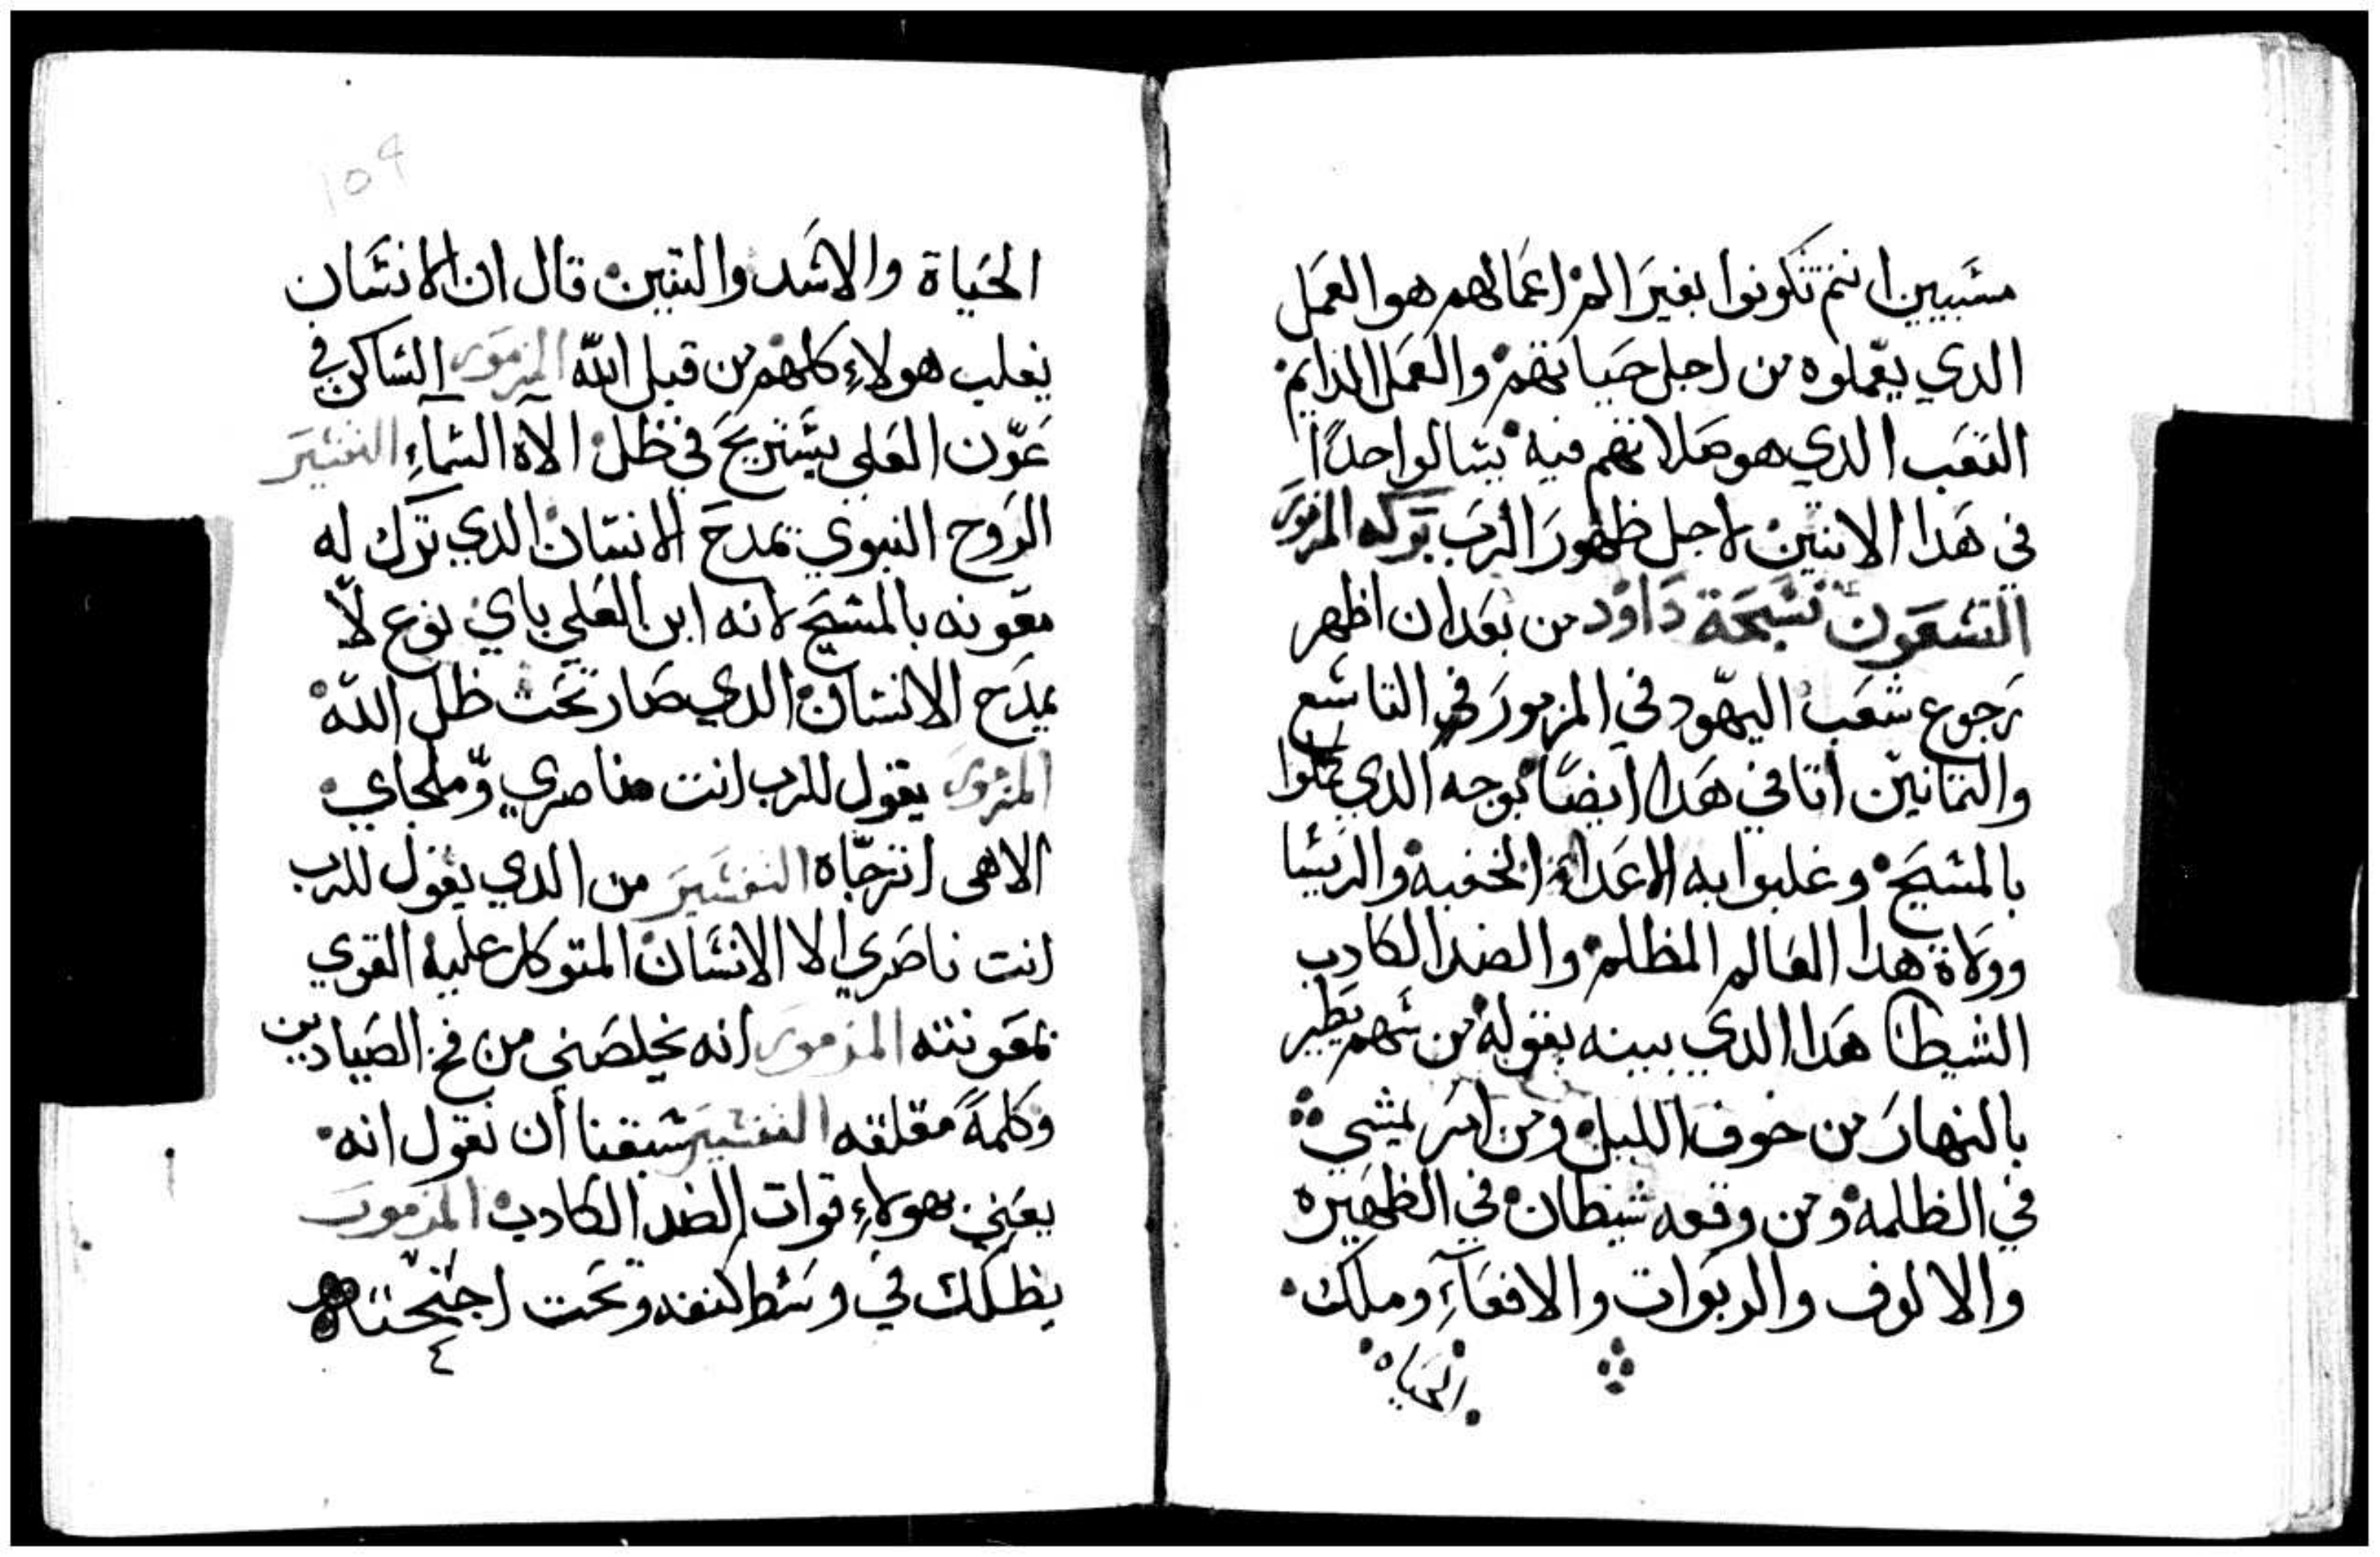 مشبيين انتم تكونوا بغير الم اعمالهم هو العمل
الدي يعملوه من اجل حياتهم والعمل الدايم
التعب الدي هو صلاتهم فيه يتسالوا احدًا
في هدا الاتنين لاجل ظهور الرب بركه المزمور
التسعون تسبحة داود من بعد ان اظهر
رجوع شعب اليهود في المزمور في التاسع
والتمانين اتا في هدا ايضًا بوجه الدي
بالمسيح وغلبوا به الاعداء الخفيه والريسا
وولاة هدا العالم المظلم والضد الكادب
الشيطان هدا الدي بينه بقوله من سهم يطير
بالنهار من خوف الليل ومن امر يمشي
في الظلمه ومن وقعه شيطان في الظهيره
والالوف والربوات والافعآء وملك
الحياه
109
الحياة والاسد والتنين قال ان الانسان
يغلب هولاء كلهم من قبل الله المزمور الساكن في
عون العلي يستريح في ظل الاه السمآء التفسير
الروح النبوي تمدح الانسان الدي ترك له
معونه بالمسيح لانه ابن العلي باي نوع لا
يمدح الانسان الدي صار تحت ظل الله
المزمور يقول للرب انت ناصري وملجاي
الاهى اترجاه التفسير من الدي يقول للرب
انت ناصري الا الانسان المتوكل عليه القوي
بمعونته المزمور انه يخلصني من فخ الصيادين
وكلمةً مقلقه التفسير سبقنا أن نقول انه
يعني بهولاء قوات الضد الكادب المزمور
يظللك في وسط كنفه وتحت اجنحته
٤